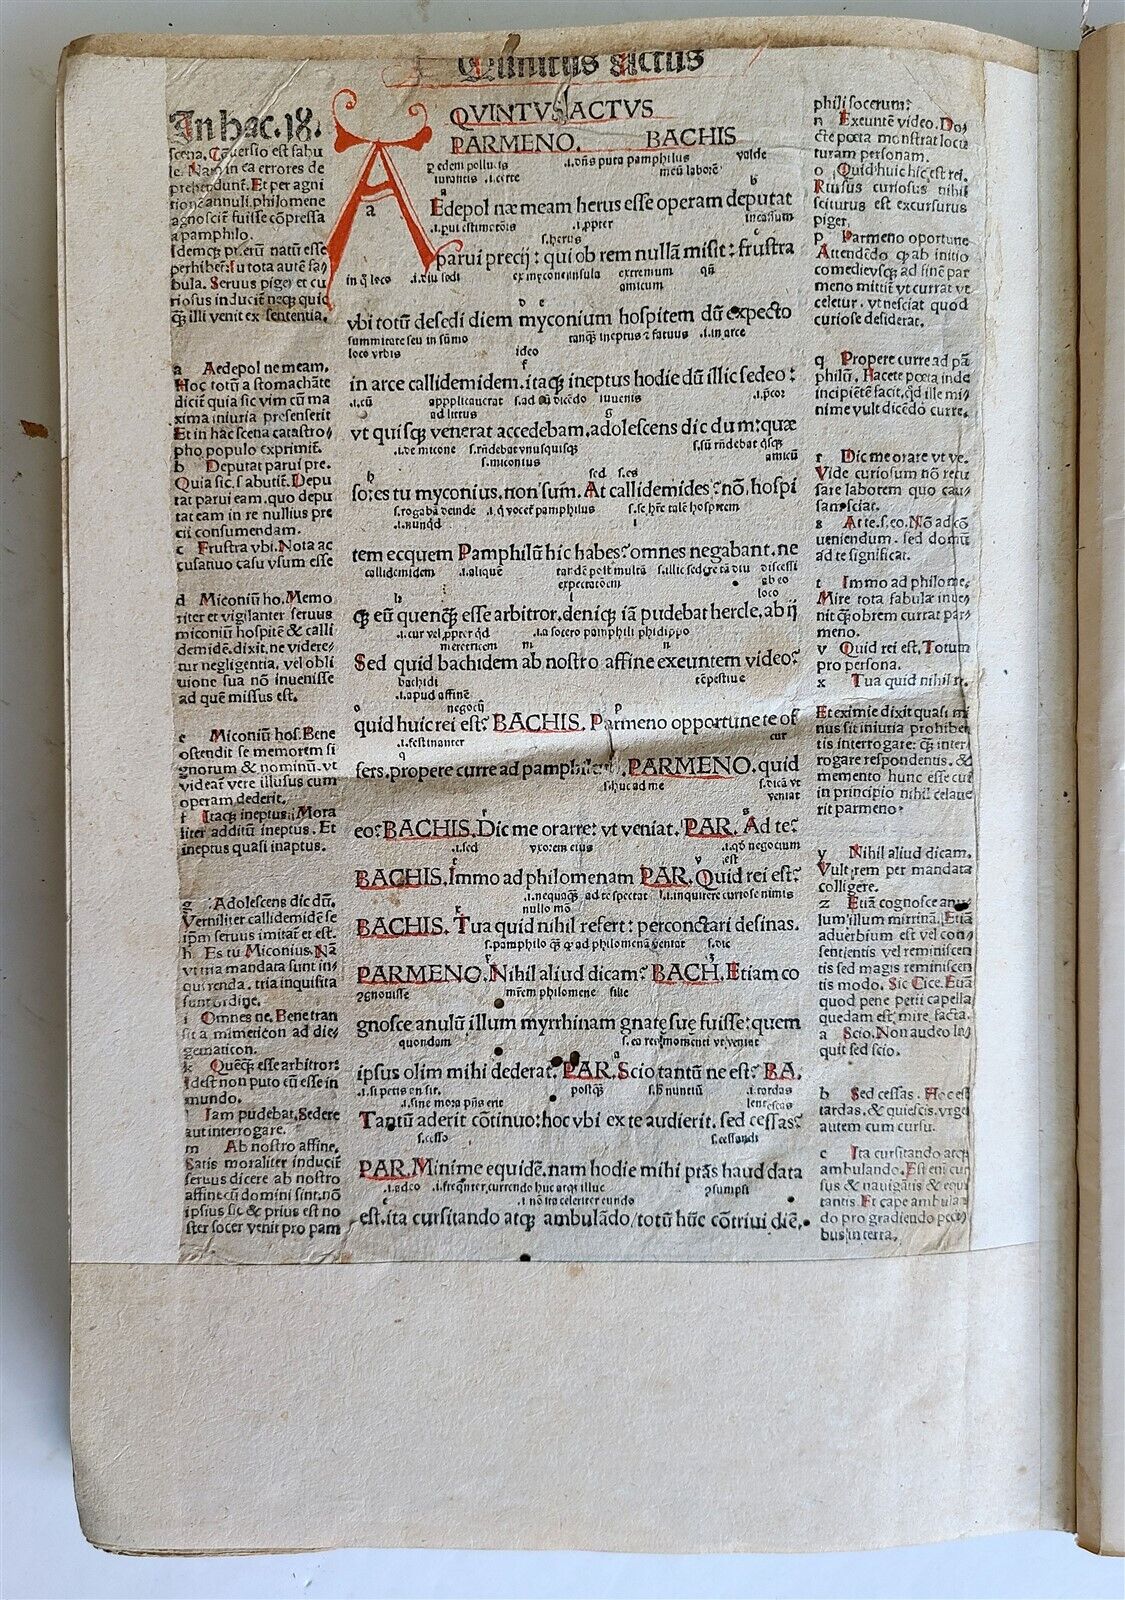 Quintus Actus
In hac. 18.
scena. Cōuersio est fabu
le. Nam in ea errores de
prehendunt̄. Et per agni
tionē annuli philomene
agnoscit̄ fuisse cōpressa
a pamphilo.
perhibet: In tota autē fa/
bula. Seruus piger et cu
riosus inducit̄ neqꝫ quid
qꝫ illi venit ex sententia.
a Aedepol ne meam.
Hoc totū a stomachāte
dicit̄ quia sic vim cū ma
xima iniuria presenserit
Et in hac scena catastro/
pho populo exprimit̄.
b Deputat parui pre.
Quia sic. s abutit̄. Depu
tat parui eam. quo depu
tat eam in re nullius pre
cii consumendam.
c Frustra vbi. Nota ac
cusatuo casu vsum esse
d Miconiū ho. Memo
riter et vigilanter seruus
miconiū hospitē & calli
demidē. dixit. ne videre/
tur negligentia. vel obli
uione sua nō inuenisse
ad quē missus est.
e Miconiū hos. Bene
ostendit se memorem si
gnorum & nominū. vt
videat vere illusus cum
operam dederit.
f Itaqꝫ ineptus. Mora
liter additū ineptus. Et
ineptus quasi inaptus.
g Adolescens dic dū.
Verniliter callidemidē se
ip̄m seruus imitat̄ et est.
h Es tu Miconius. Nā
vt tria mandata sunt in/
quirenda. tria inquisita
sunt ordine.
i Omnes ne. Bene tran
sit a mimeticon ad die/
gematicon.
k Quēqꝫ esse arbitror:
Id est non puto eū esse in
mundo.
l Iam pudebat. Sedere
aut interrogare.
m Ab nostro affine.
Satis moraliter inducit̄
seruus dicere ab nostro
affine cū domini sint. nō
ipsius sic & prius est no
ster socer venit pro pam
QVINTVS ACTVS
PARMENO. BACHIS
valde
iurantis .i. certe meū laborē
a b
Edepol næ meam herus esse operam deputat
.i. ppter
s. herus c
parui precij: qui ob rem nullā misit: frustra
in q̄ loco .i. diu sedi ex mycone insula extremum qn̄
amicum
d e
vbi totū desedi diem myconium hospitem dū expecto
summitate seu in sūmo tanqꝫ ineptus & fatuus .i. in arce
loco vrbis ideo
f
in arce callidemidem. itaqꝫ ineptus hodie dū illic sedeo:
.i. cū appplicauerat s. ad eū dicēdo iuuenis .i. p̄cor
ad littus g
vt quisqꝫ venerat accedebam. adolescens dic dum: quæ
.i. de micone s. rn̄debat vnusquisqꝫ s. sū rn̄debat q̄sqꝫ
s. miconius amicū
h sed s. es
so: es tu myconius. non sum. At callidemides: nō. hospi
s. rogabā deinde .i. q̄ vocet̄ pamphilus s. se hr̄e talē hospitem
.i. nunqd i
tem ecquem Pamphilū hic habes: omnes negabant. ne
callidemidem .i. aliquē tandē post multā s. illic sedere tā diu discessi
expectatōem ab eo
k l loco
qꝫ eū quenqꝫ esse arbitror. deniqꝫ iā pudebat hercle. ab ij
.i. cur vel ppter qd .i. a socero pamphili phidippo
meretricem m n
Sed quid bachidem ab nostro affine exeuntem video:
bachidi tēpestiue
.i. apud affinē
o negocij p
quid huic rei est: BACHIS. Parmeno opportune te of
.i. festinanter cur
q
fers. propere curre ad pamphilum. PARMENO. quid
s. huc ad me s. dicā vt
veniat
r s
eo: BACHIS. Dic me orarre: vt veniat. PAR. Ad te:
.i. sed vxorem eius .i. qd negocium
t v est
BACHIS. Immo ad philomenam PAR. Quid rei est:
.i. nequaqꝫ ad te spectat .i. inquirere curiose nimis
x nullo mō
BACHIS. Tua quid nihil refert: perconctari desinas.
s. pamphilo qꝫ q ad philomenā veniat s. dic
y z
PARMENO. Nihil aliud dicam: BACH. Etiam co
ꝯgnouisse mr̄em philomene filie
gnosce anulū illum myrrhinam gnate suę fuisse: quem
quondam
a
ipsus olim mihi dederat. PAR. Scio tantū ne est: BA.
postqꝫ s. h̄ nuntiū .i. tardas
Tantū aderit cōtinuo: hoc vbi ex te audierit. sed cessas:
s. cesso s. cessandi
PAR. Minime equidē. nam hodie mihi ptās haud data
.i. adeo .i. freqnter currendo huc atqꝫ illuc ꝯsumpsi
c .i. nō ita celeriter eundo
est. ita cursitando atqꝫ ambulādo/ totū hūc cōtriui diē.
phili socerum:
n Exeuntē video. Do/
cte poeta monstrat locu
turam personam.
o Quid huic hic est rei.
Rursus curiosus nihil
sciturus est excursurus
piger.
p Parmeno oportune
Attendēdo qꝫ ab initio
comedie vsqꝫ ad finē par
meno mittit̄ vt currat vt
celetur. vt nesciat quod
curiose desiderat.
q Propere curre ad pā
philū. Facete poeta inde
incipiēt facit. qd ille mi/
nime vult dicēdo curre.
r Dic me orare vt ve.
Vide curiosum nō recu
sare laborem quo cau/
sam sciat.
s At te. s. eo. Nō ad cō
ueniendum. sed domū
ad te significat.
t Immo ad philome.
Mire tota fabula inue/
nit qꝫ obrem currat par/
meno.
v Quid rei est. Totum
pro persona.
x Tua quid nihil r.
Et eximie dixit quasi mi
nus sit iniuria prohiben
tis interrogare: qꝫ inter/
rogare respondenti. &
memento hunc esse cui
in principio nihil celaue
rit parmeno.
y Nihil aliud dicam.
Vult rem per mandata
colligere.
z Etiā cognosce anu/
lum illum mirrinā. Etiā
aduerbium est vel con/
sentientis vel reminiscen
tis sed magis reminiscen
tis modo. Sic Cice. Etiā
quod pene petii capella
quedam est mire facta.
a Scio. Non audeo in/
quit sed scio.
b Sed cessas. Hoc est
tardas. & quiescis. vrget
autem cum cursu.
c Ita cursitando atqꝫ
ambulando. Est eni cur
sus & nauigātis & equi
tantis. Et cape ambulan
do pro gradiendo pedi/
bus in terra.